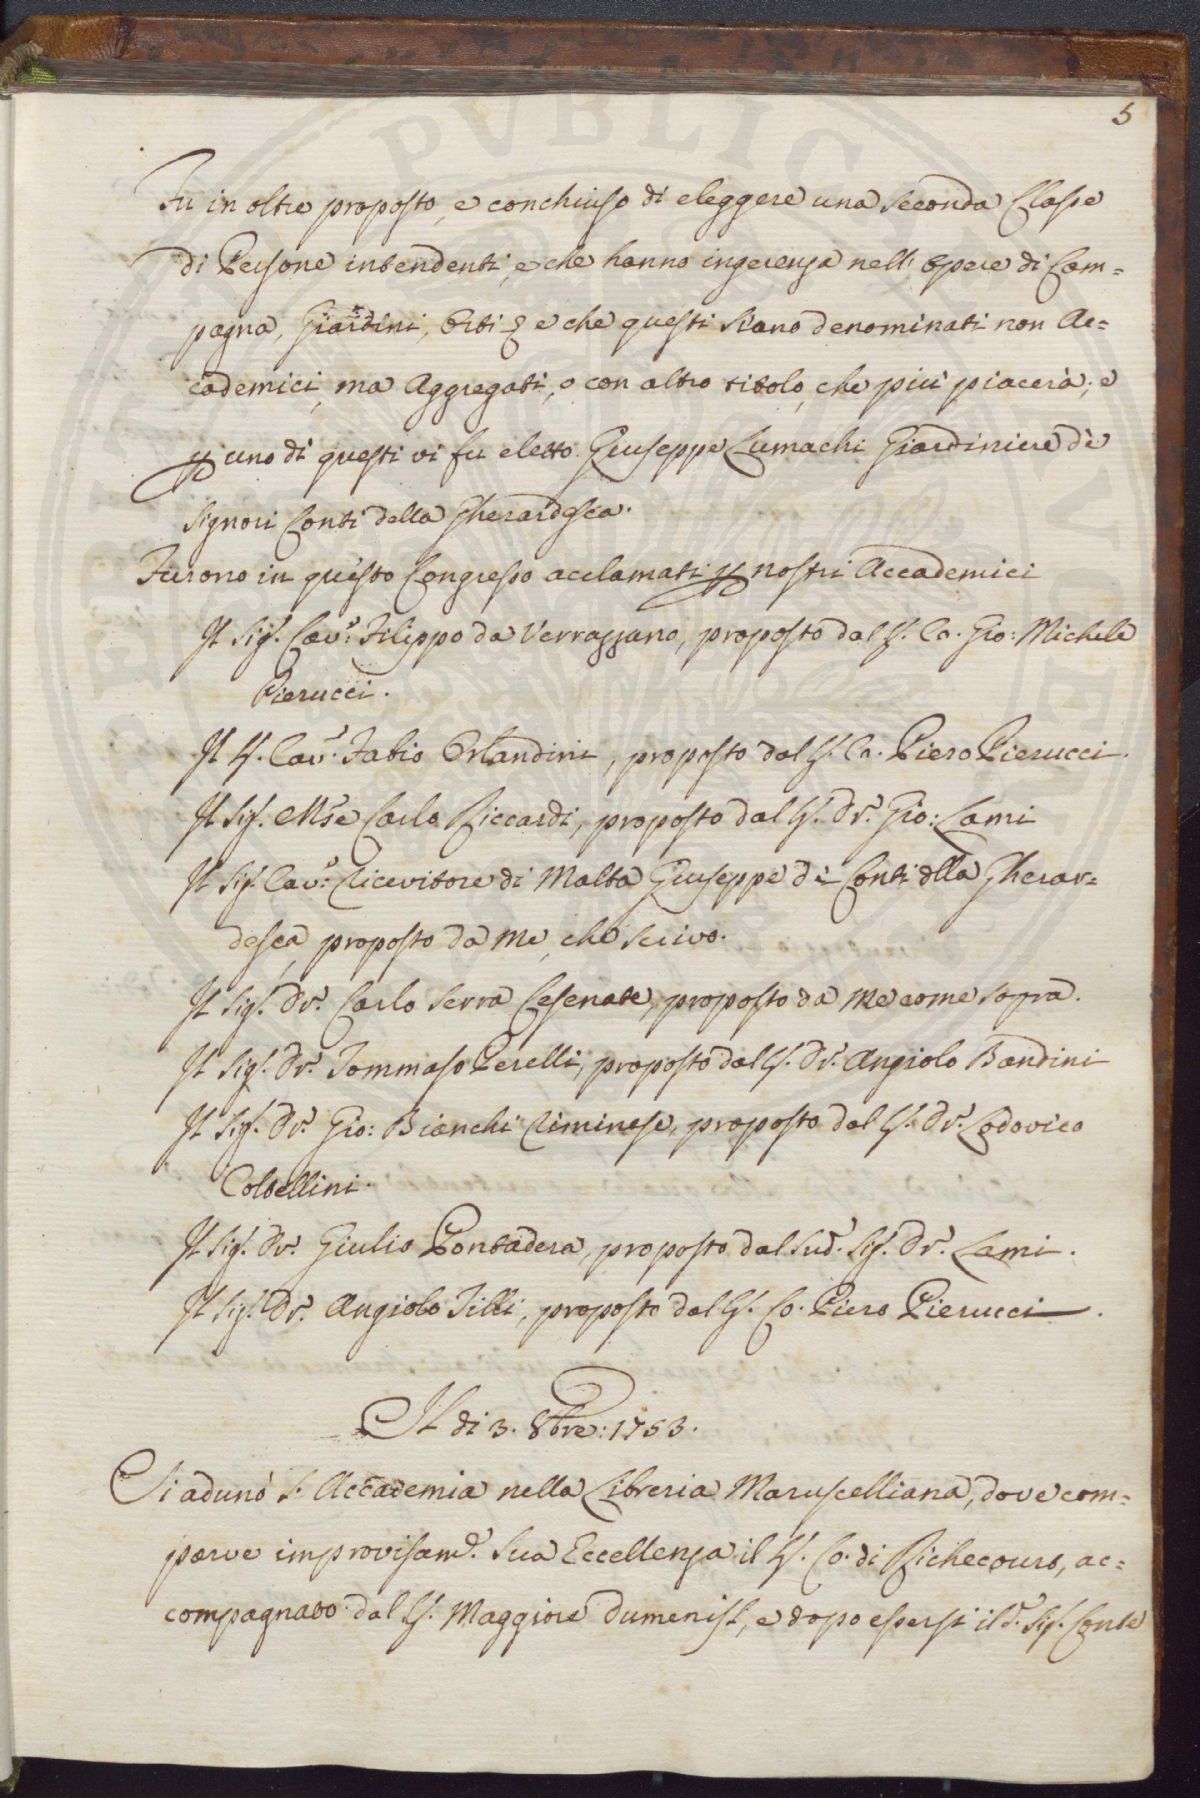 5
Fu in oltre proposto, e conchiuso di eleggere una seconda Classe
di Persone intendenti, e che hanno ingerenza nell' opere di Cam=
pagna, Giardini, Orti &c e che questi siano denominati non Ac=
cademici, ma Aggregati, o con altro titolo, che più piacerà; e
p uno di questi vi fu eletto Giuseppe Lumachi Giardiniere dè
Signori Conti della Gherardesca.
Furono in questo Congresso acclamati p nostri Accademici
Il Sig. Cav.e Filippo da Verrazzano, proposto dal S. Co. Gio: Michele
Pierucci.
Il S. Cav.e Fabio Orlandini, proposto dal S. Co. Piero Pierucci.
Il Sig. Mse Carlo Riccardi, proposto dal S. Dr. Gio: Lami
Il Sig. Cav.e Ricevitore di Malta Giuseppe dè Conti dlla Gherar=
desca, proposto da me, che scrivo.
Il Sig. Dr. Carlo Serra Cesenate, proposto da me come sopra.
Il Sig. Dr. Tommaso Perelli, proposto dal S. Dr. Angiolo Bandini
Il Sig. Dr. Gio: Bianchi Riminese, proposto dal S. Dr. Lodovico
Coltellini.
Il Sig. Dr. Giulio Pontadera, proposto dal sud. Sig. Dr. Lami.
Il Sig. Dr. Angiolo Tilli, proposto dal S. Co. Piero Pierucci.
Il di 3. 8bre: 1753.
Si adunò l' Accademia nella Libreria Maruscelliana, dove com=
parve improvisam.e Sua Eccellenza il S. Co. di Richecourt, ac=
compagnato dal S. Maggiore Dumenisl, e dopo essersi il d. Sig. Conte
PUBLIC